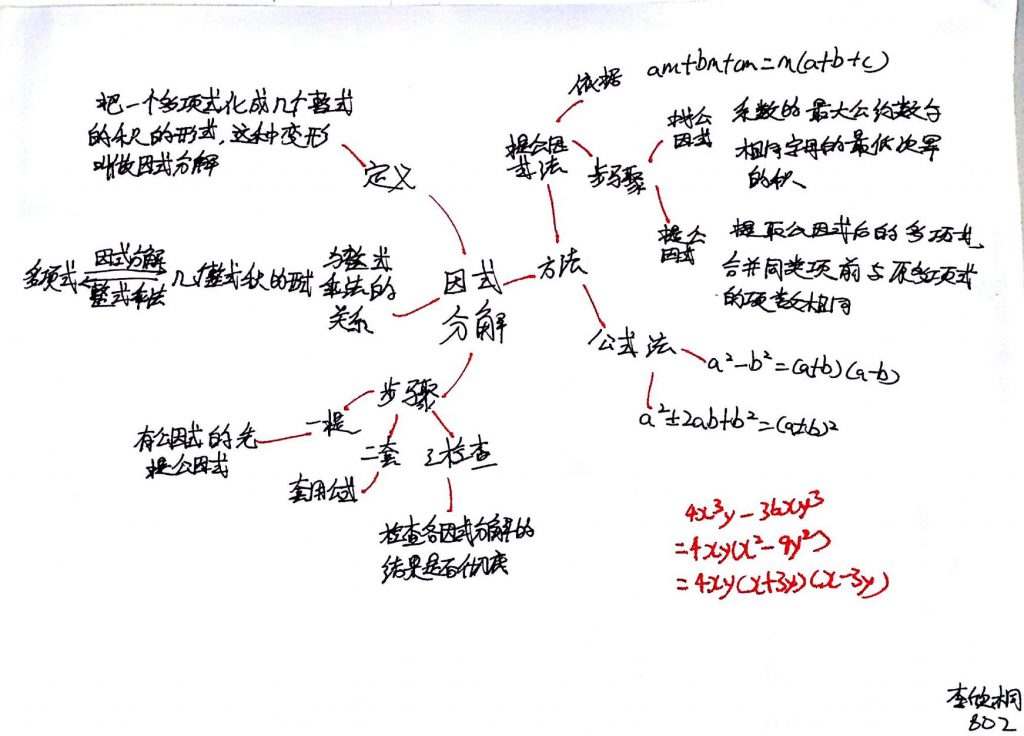 把一个多项式化成几个整式
的积的形式,这种变形
叫做因式分解
定义
多项式
因式分解
整式乘法
几个整式积的形式
与整式
乘法的
关系
因式
分解
方法
提公因
式法
依据
am+bm+cm=m(a+b+c)
步骤
找公
因式
系数的最大公约数与
相同字母的最低次幂
的积、
提公
因式
提取公因式后的多项式,
合并同类项前与原多项式
的项数相同
公式法
a²-b²=(a+b)(a-b)
a²±2ab+b²=(a±b)²
步骤
一提
有公因式的先
提公因式
二套
套用公式
三检查
检查各因式分解的
结果是否彻底
4x³y-36xy³
=4xy(x²-9y²)
=4xy(x+3y)(x-3y)
802